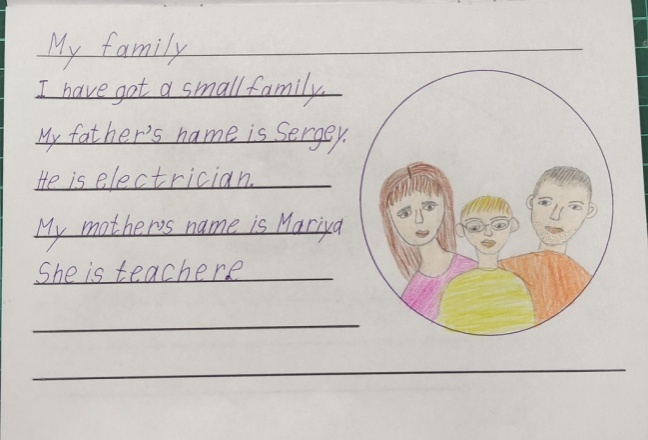 My family
I have got a small family.
My father's name is Sergey.
He is electrician.
My mother's name is Mariya
She is teachere